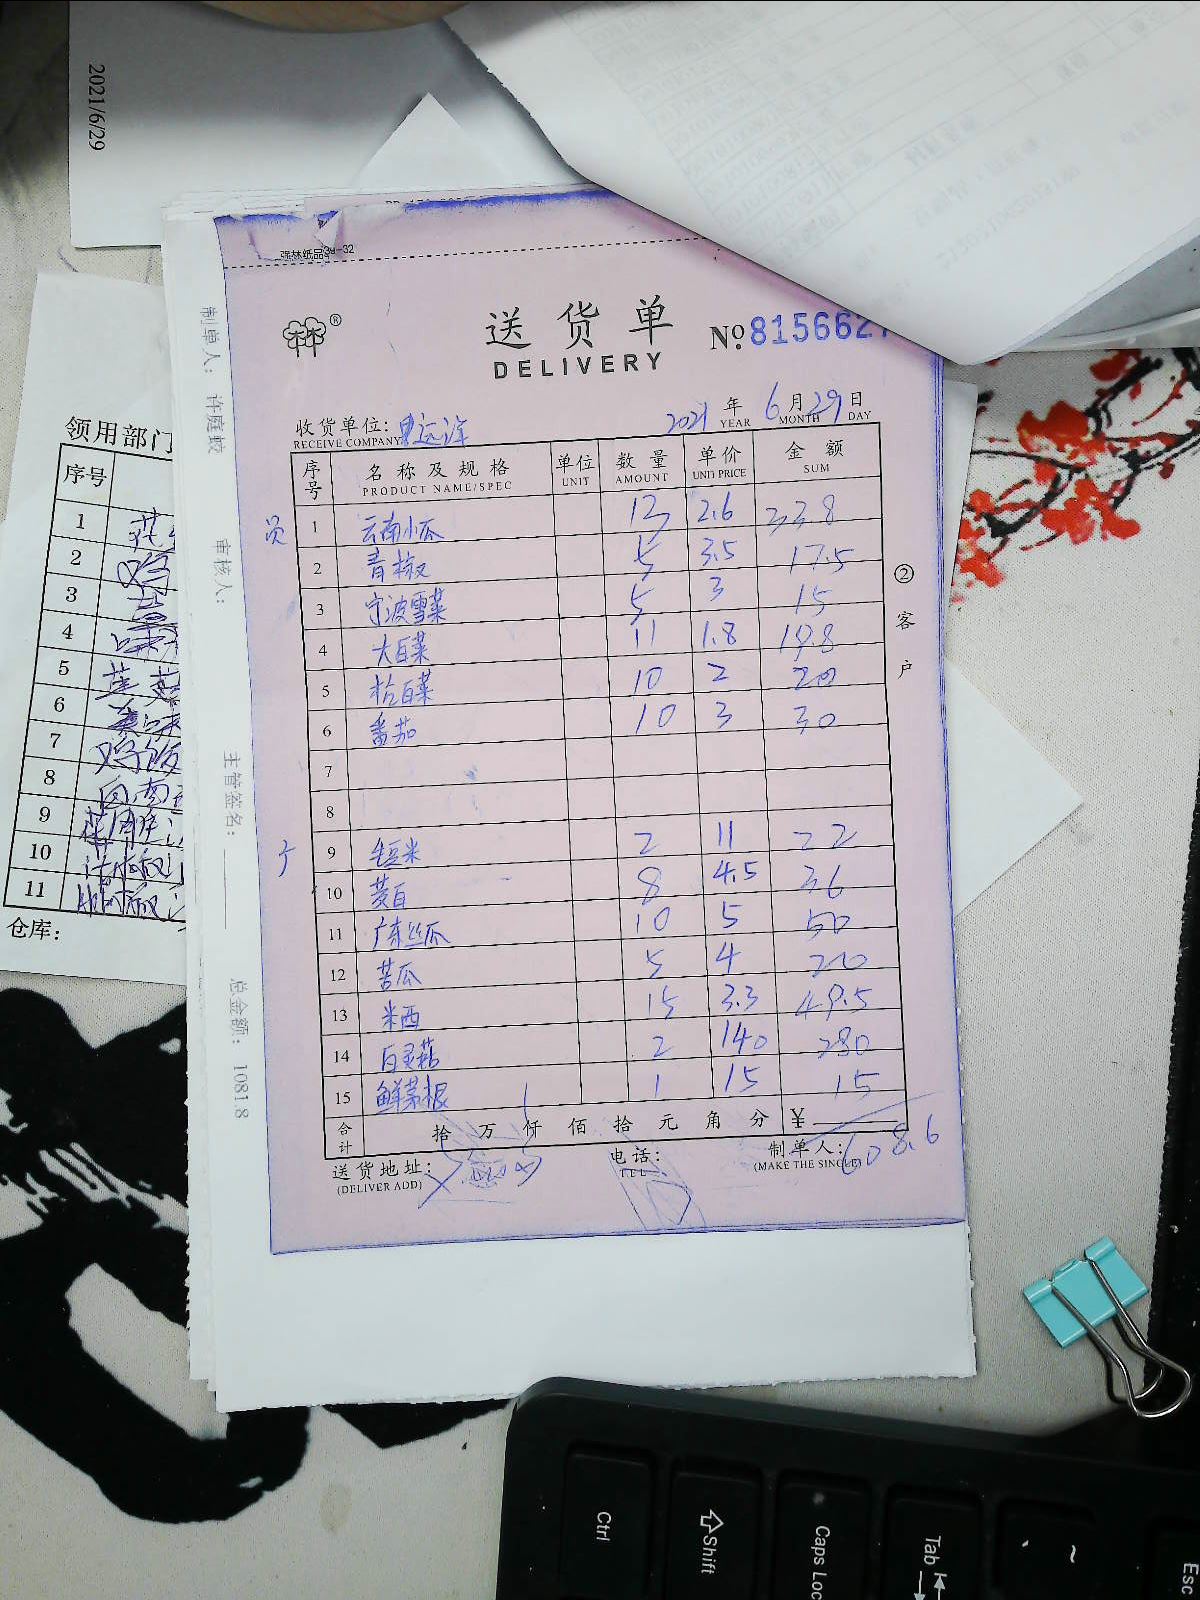 2021/6/29
强林纸品34-32
送货单
DELIVERY
№: 8156627
收货单位:
RECEIVE COMPANY
2021 年 6 月 29 日
YEAR MONTH DAY
序号 名称及规格 单位 数量 单价 金额
PRODUCT NAME/SPEC UNIT AMOUNT UNIT PRICE SUM
员
1 云南小瓜 13 2.6 33.8
2 青椒 5 3.5 17.5
3 宁波雪菜 5 3 15
4 大白菜 11 1.8 19.8
5 白菜 10 2 20
6 番茄 10 3 30
7
8
9 米 2 11 22
10 茭白 8 4.5 36
11 广东丝瓜 10 5 50
12 苦瓜 5 4 20
13 米西 15 3.3 49.5
14 白灵菇 2 140 280
15 鲜茅根 1 15 15
合计 拾 万 仟 佰 拾 元 角 分 ¥
608.6
送货地址:
(DELIVER ADD)
电话:
TEL
制单人:
(MAKE THE SINGLE)
②客户
制单人: 许庭蛟
审核人:
主管签名:
总金额: 1081.8
领用部门
序号
1
2
3
4
5
6
7
8
9
10
11
仓库:
Ctrl
Shift
Caps Loc
Tab
~
Esc